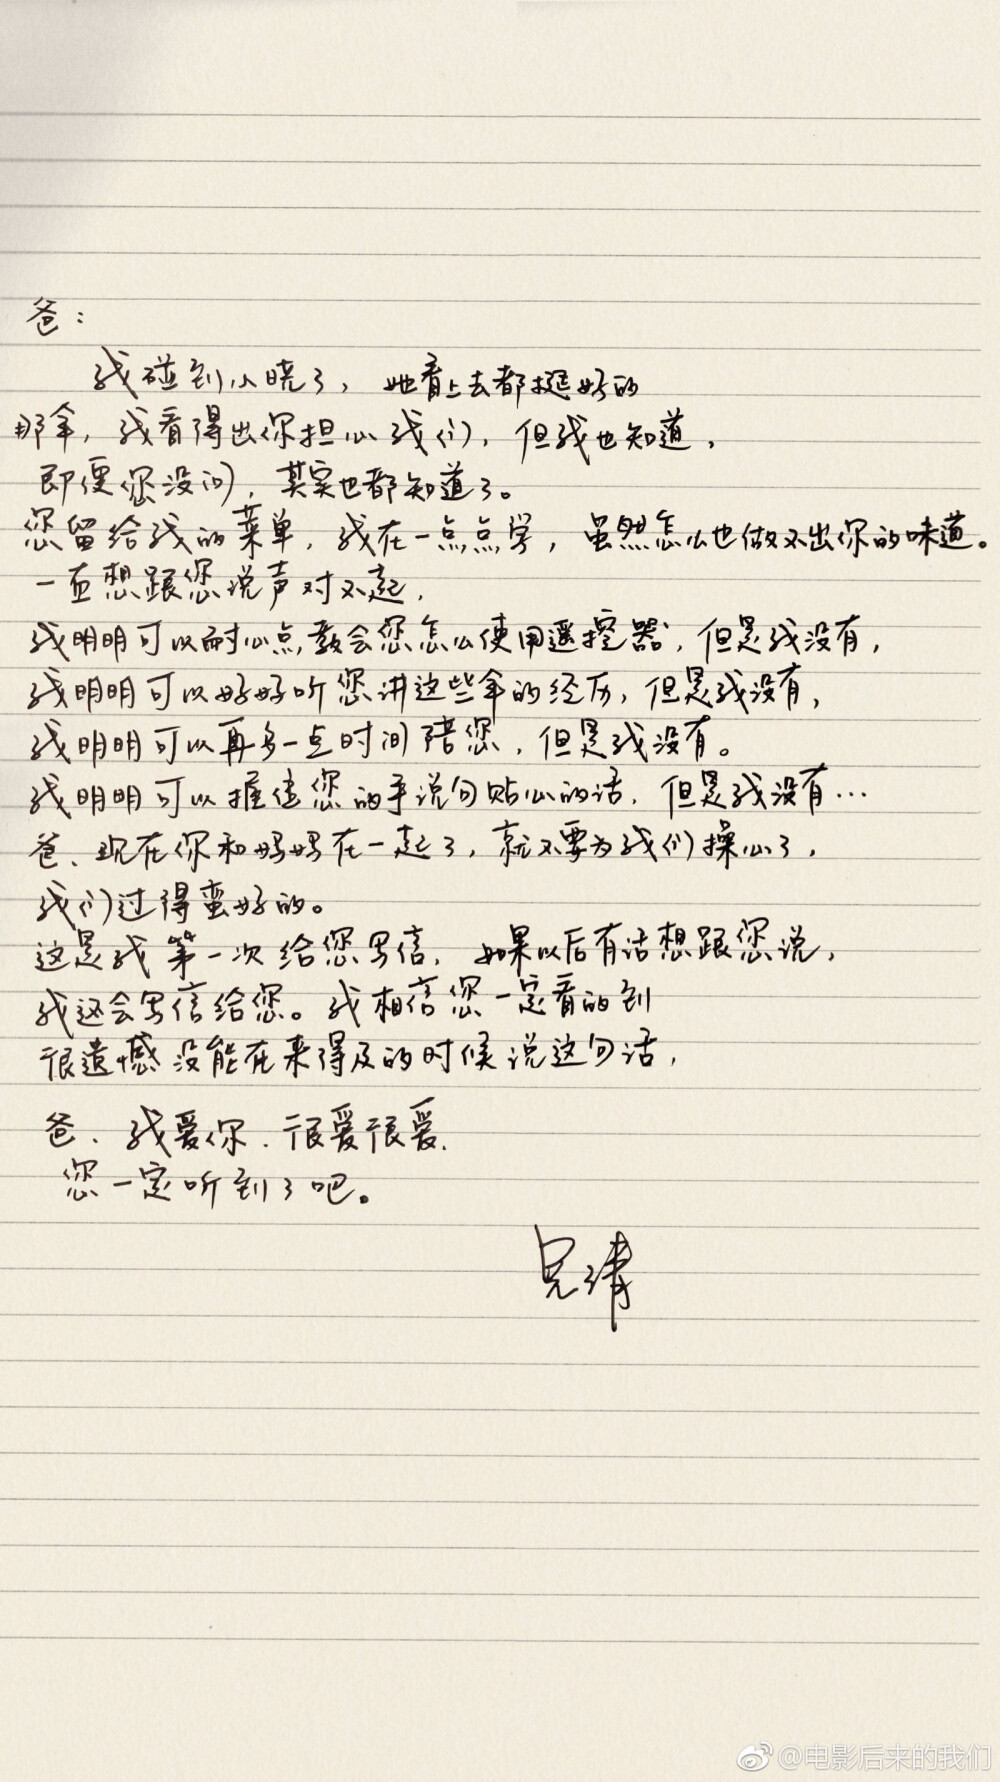 爸：
我碰到小晓了，她看上去都挺好的
那年，我看得出你担心我们，但我也知道，
即便您没问，其实也都知道了。
您留给我的菜单，我在一点点学，虽然怎么也做不出你的味道。
一直想跟您说声对不起，
我明明可以耐心点教会您怎么使用遥控器，但是我没有，
我明明可以好好听您讲这些年的经历，但是我没有，
我明明可以再多一点时间陪您，但是我没有。
我明明可以握住您的手说句贴心的话，但是我没有…
爸、现在你和妈妈在一起了，就不要为我们操心了，
我们过得蛮好的。
这是我第一次给您写信，如果以后有话想跟您说，
我还会写信给您。我相信您一定看的到
很遗憾没能在来得及的时候说这句话，
爸、我爱你、很爱很爱，
您一定听到了吧。
见清
@电影后来的我们